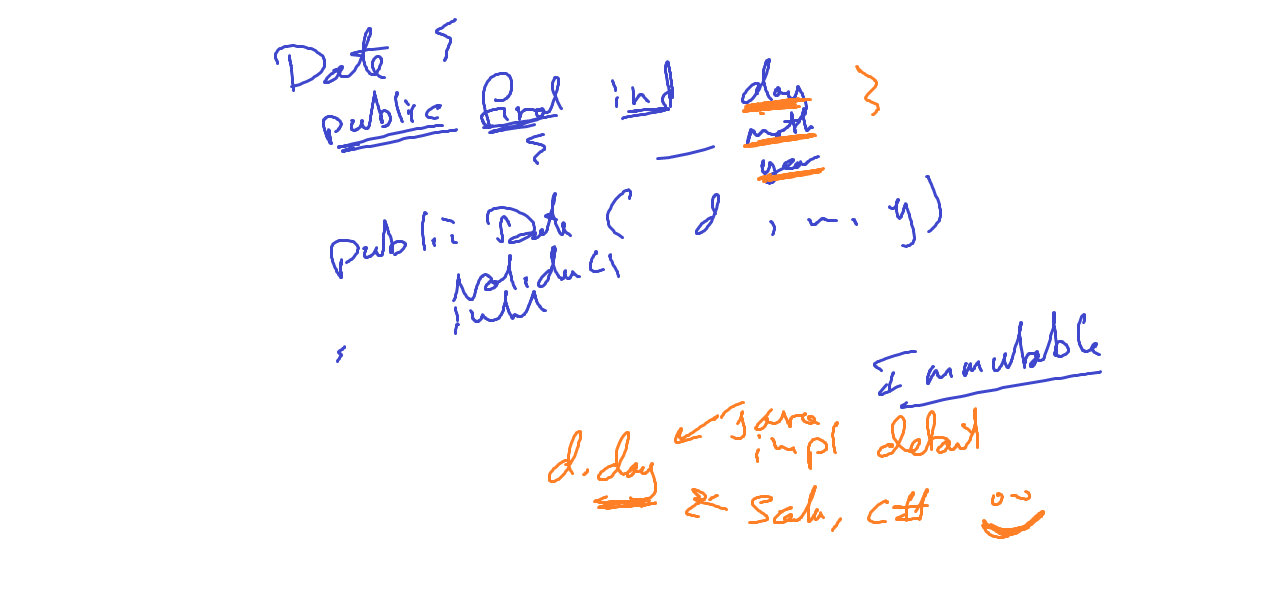 Date {
public final int day }
{ — month
year
public Date ( d , m, y )
validate
init
}
Immutable
d.day ← Java impl detail
← Scala, C#